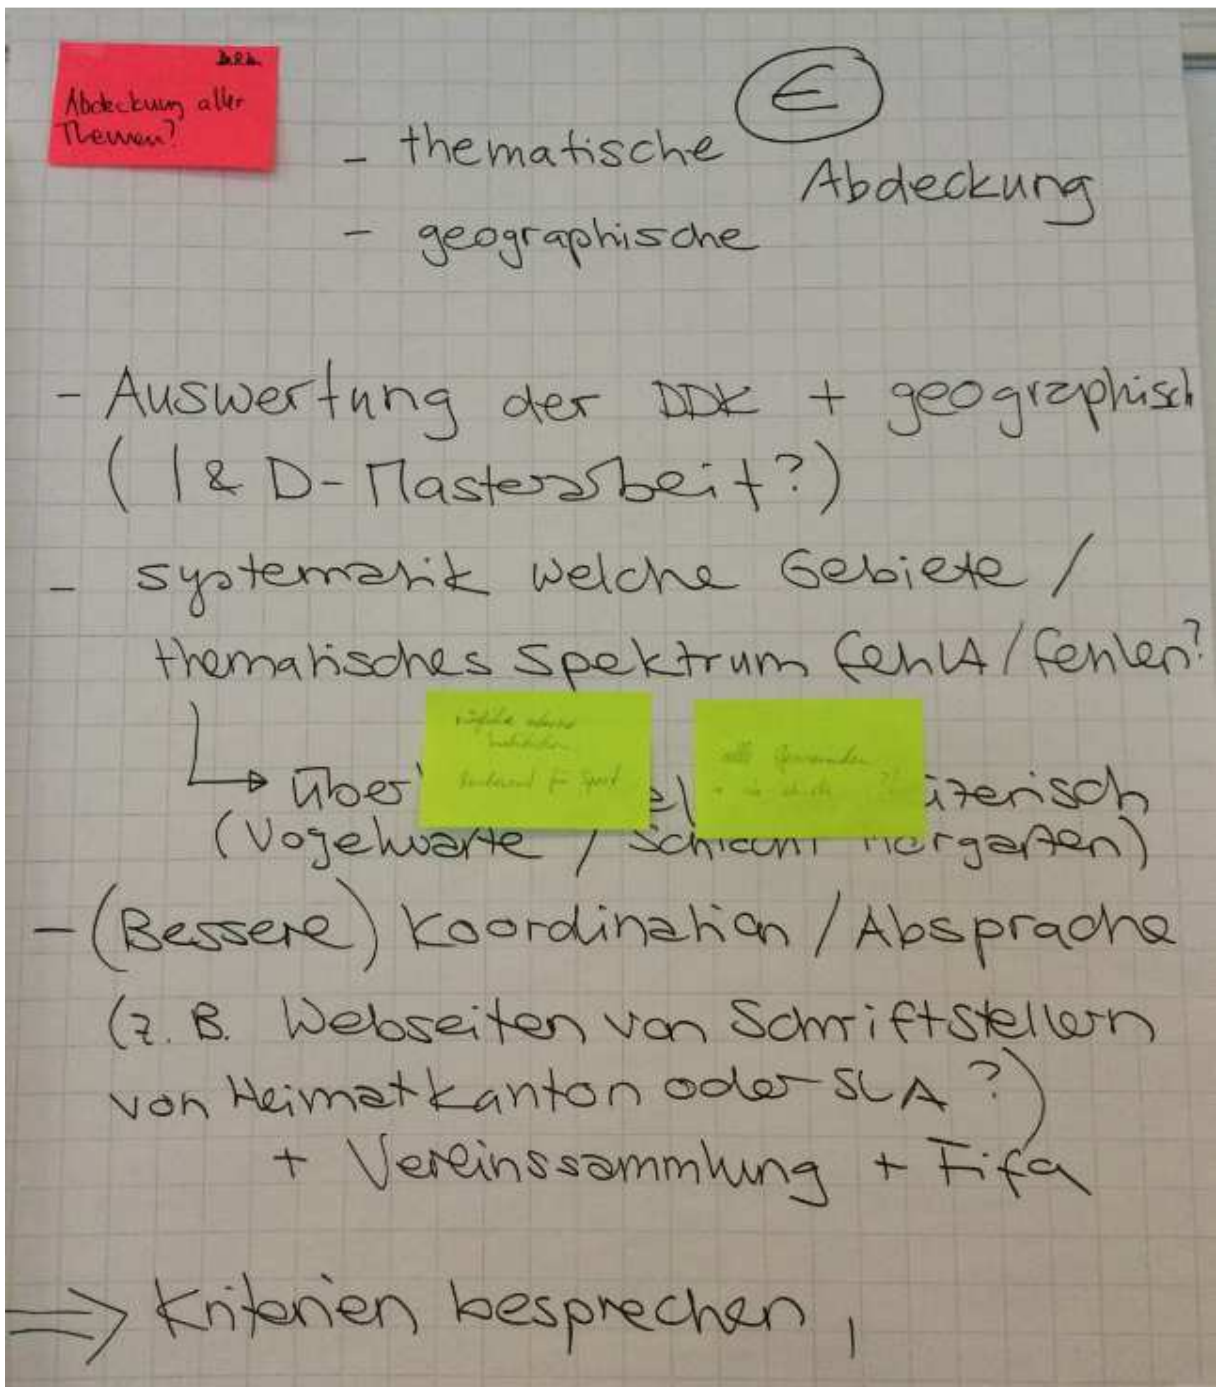 Abdeckung aller
Themen?
E
- thematische
Abdeckung
- geographische
- Auswertung der DDK + geographisch
(I & D-Masterarbeit?)
- systematik welche Gebiete /
thematisches Spektrum fehlt/fehlen?
alle Gemeinden
für Sport
über
izerisch
(Vogelwarte / Schlacht Morgarten)
- (Bessere) Koordination / Absprache
(z. B. Webseiten von Schriftstellern
von Heimatkanton oder SLA ?)
+ Vereinssammlung + Fifa
⇒ Kriterien besprechen,